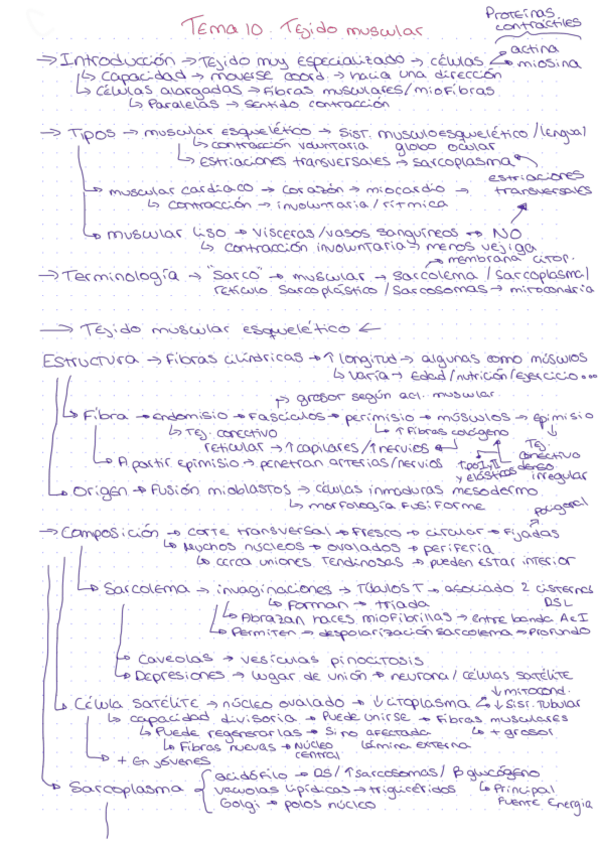 Tema 10. Tejido muscular
Proteínas contráctiles
→ Introducción → Tejido muy especializado → células actina
miosina
↳ Capacidad → moverse coord. → hacia una dirección
↳ Células alargadas → Fibras musculares/miofibras
↳ Paralelas → sentido contracción
→ Tipos → muscular esquelético → Sist. musculoesquelético/lengual
↳ contracción voluntaria globo ocular
↳ Estriaciones transversales → sarcoplasma
estriaciones
↳ muscular cardíaco → corazón → miocardio → transversales
↳ contracción → involuntaria/rítmica
↳ muscular liso → vísceras/vasos sanguíneos → NO
↳ contracción involuntaria → menos vejiga
→ membrana citop.
→ Terminología → "sarco" → muscular → sarcolema/sarcoplasma/
retículo sarcoplástico/sarcosomas → mitocondria
→ Tejido muscular esquelético ←
Estructura → Fibras cilíndricas → ↑ longitud → algunas como músculos
↳ varía → Edad/nutrición/ejercicio...
→ grosor según act. muscular
↳ Fibra → endomisio → Fascículos → perimisio → músculos → epimisio
↳ Tej. conectivo ↳ ↑ Fibras colágeno
reticular → ↑ capilares/↑ nervios Tej. conectivo
↳ A partir epimisio → penetran arterias/nervios Tipo I, y elásticos denso irregular
↳ Origen → Fusión mioblastos → células inmaduras mesodermo
↳ morfología fusiforme
poligonal
→ Composición → corte transversal → Fresco → circular → Fijadas
↳ Muchos núcleos → ovalados → periferia
↳ cerca uniones tendinosas → pueden estar interior
↳ Sarcolema → invaginaciones → Túbulos T → asociado 2 cisternas
↳ Forman → triada RSL
↳ Abrazan haces miofibrillas → entre banda A e I
↳ Permiten → despolarización sarcolema → profundo
↳ Caveolas → vesículas pinocitosis
↳ Depresiones → lugar de unión → neurona/células satélite
↓ mitocond.
↳ Célula satélite → núcleo ovalado → ↓ citoplasma ↓ sist. tubular
↳ capacidad divisoria → Puede unirse → Fibras musculares
↳ Puede regenerarlas → Si no afectada ↳ + grosor
↳ Fibras nuevas → núcleo central lámina externa
↳ + En jóvenes
↳ Sarcoplasma acidófilo → RS/↑ sarcosomas/β glucógeno
vacuolas lipídicas → triglicéridos ↳ Principal
Golgi → polos núcleo Fuente Energía